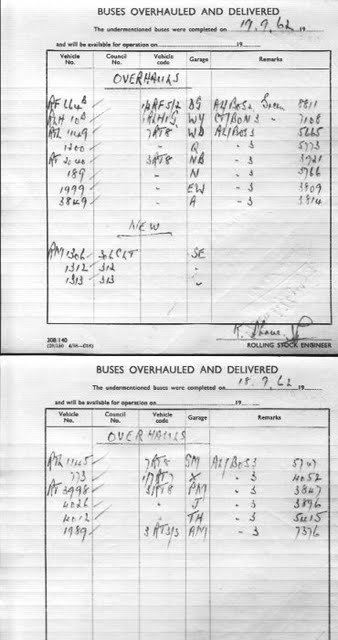 BUSES OVERHAULED AND DELIVERED
The undermentioned buses were completed on 19.9.62 19
and will be available for operation on 19
Vehicle No. Council No. Vehicle code Garage Remarks
OVERHAULS
RF 664B DG Green 8811
108 WY 7108
1149 7RT8 WD 5665
1200 " Q " 3 5773
RT 2040 3RT8 NB " 3 3921
189 " N " 3 5766
1999 " EW " 3 3909
3849 " A " 3 3814
NEW
RM 1306 306CLT SE
1312 312 "
1313 313 "
308/140
ROLLING STOCK ENGINEER
BUSES OVERHAULED AND DELIVERED
The undermentioned buses were completed on 18.9.62 19
and will be available for operation on 19
Vehicle No. Council No. Vehicle code Garage Remarks
OVERHAULS
1145 7RT8 SM
773 X " 3 4052
RT 3998 3RT8 PM " 3 3847
4026 " J " 3 3896
4012 " TH " 3 5415
1989 3RT3/3 AM " 3 7376